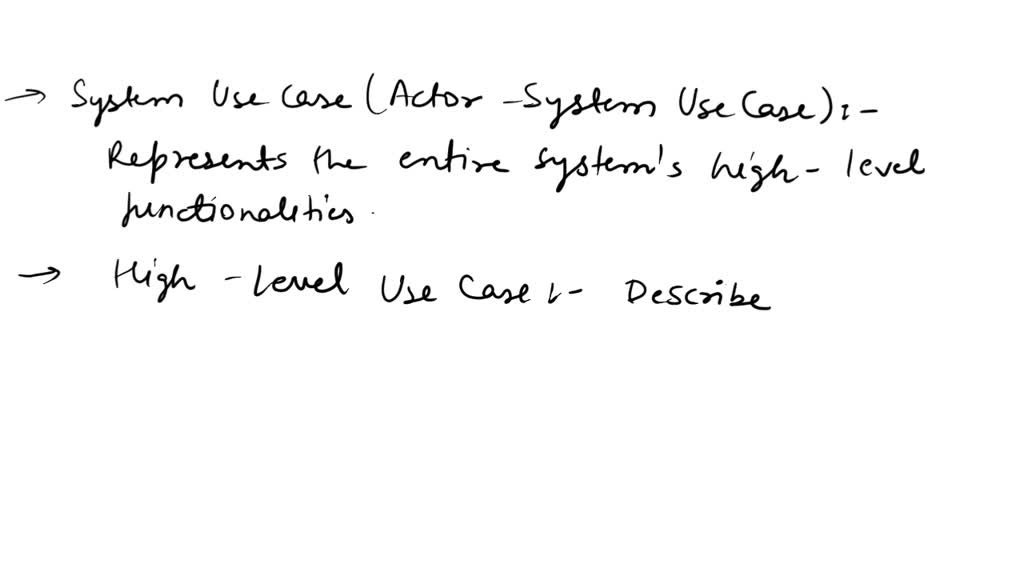 → System Use Case (Actor - System Use Case) :-
Represents the entire system's high - level
functionalities.
→ High - Level Use Case :- Describe